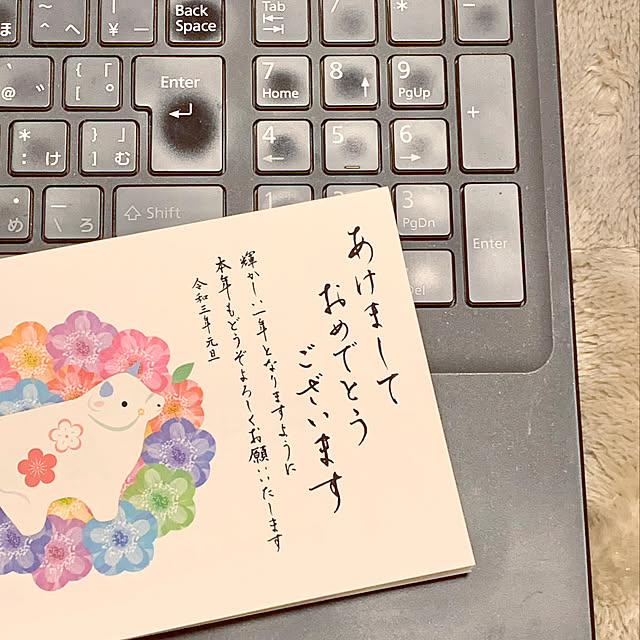 Back
Space
Tab
7
*
-
ほ
~
^ へ
|
¥ ー
Enter
7
Home
8
9
PgUp
+
@ ゛
{ 「
[ ゜
* け
:
} 」
] む
4
5
6
め
\ ろ
Shift
1
3
PgDn
Enter
あけまして
おめでとう
ございます
輝かしい一年となりますように
本年もどうぞよろしくお願いいたします
令和三年元旦